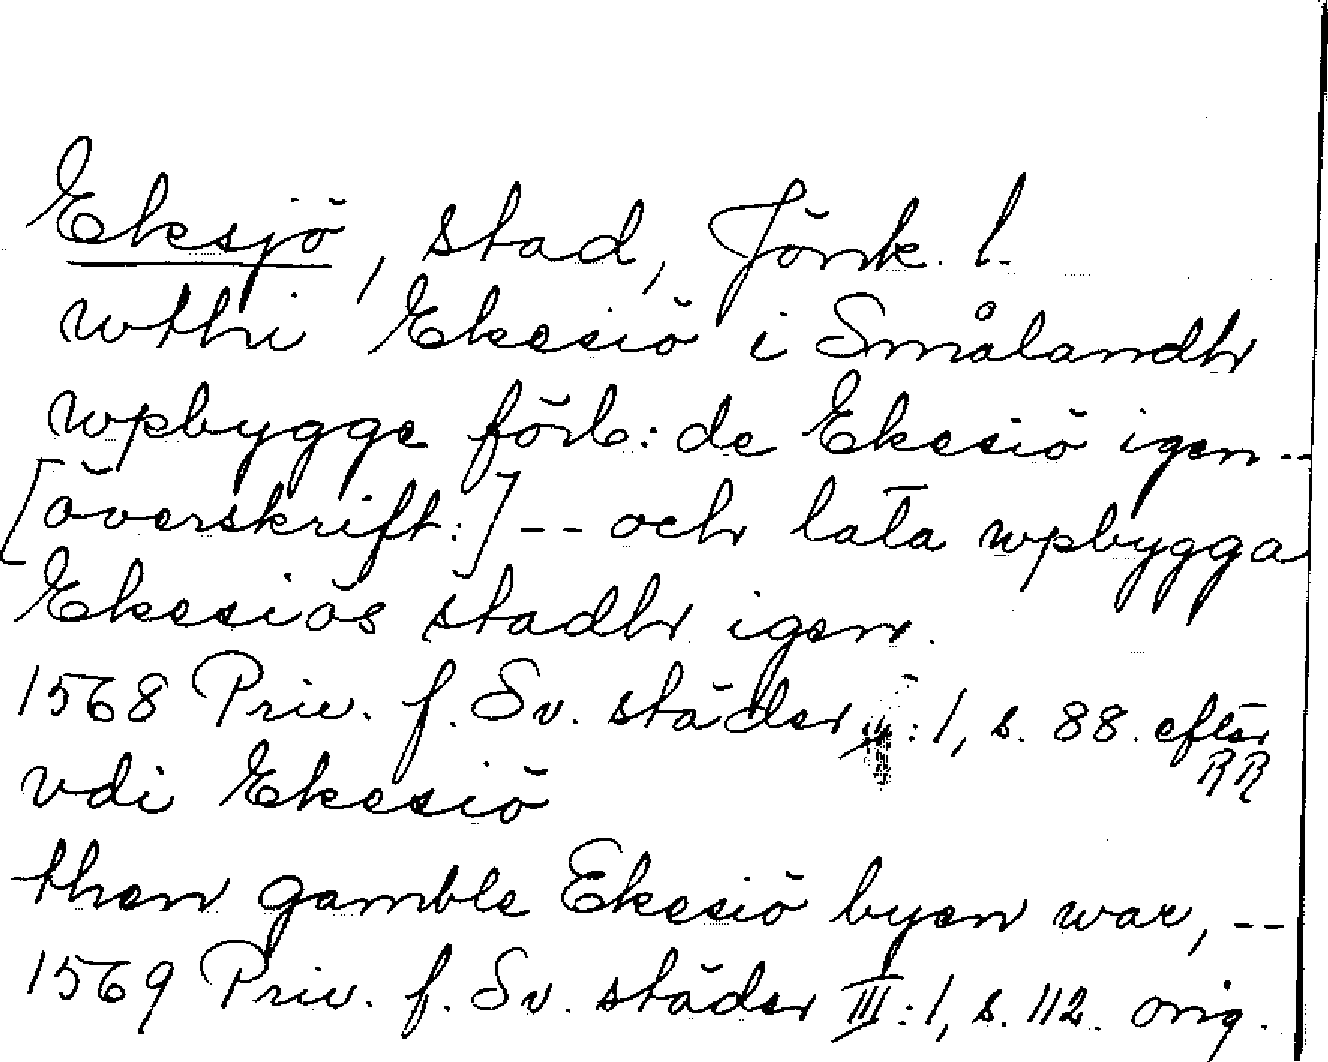 Eksjö, stad, Jönk. l.
wthi Ekesiö i Smålandh
wpbygge förb: de Ekesiö igen--
[överskrift:] -- och lata wpbygga
Ekesiös stadh igen.
1568 Priv. f. Sv. städer III:1, s. 88. efter RR
vdi Ekesiö
then gamble Ekesiö byen war, --
1569 Priv. f. Sv. städer III:1, s. 112. orig.